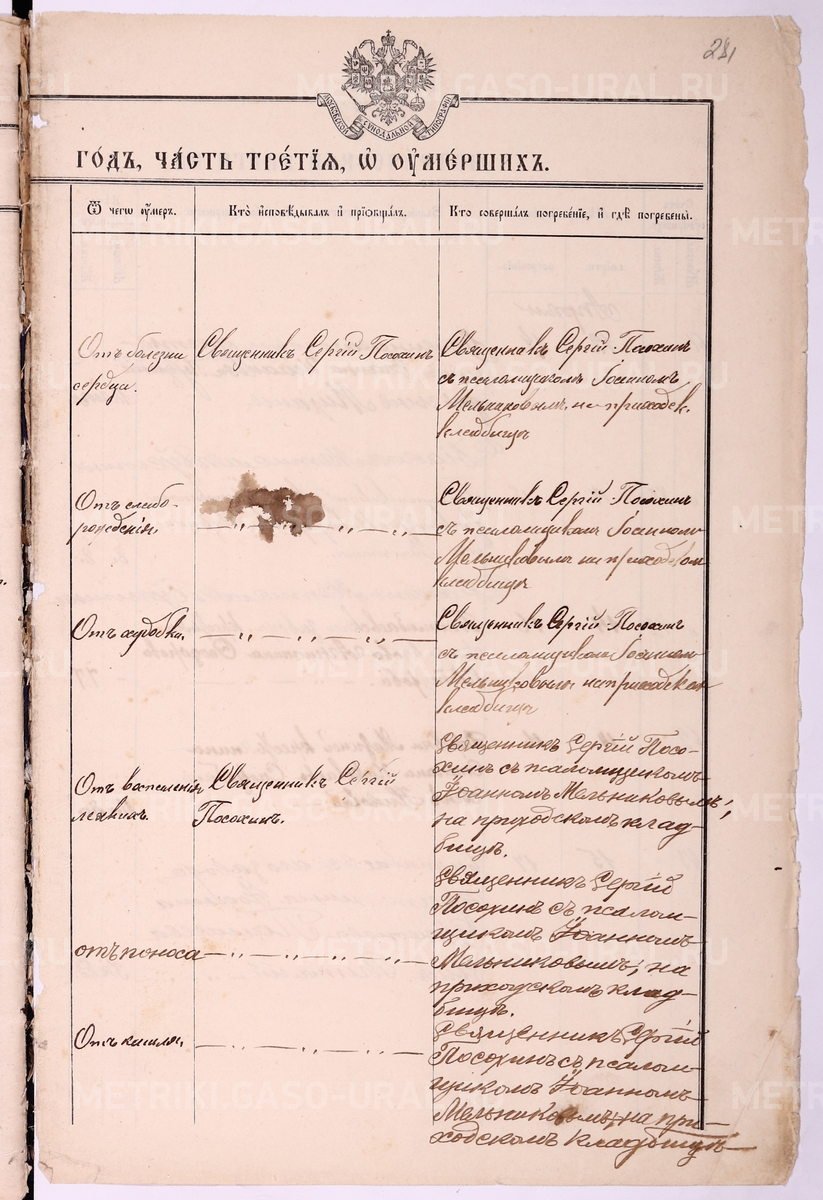 281
МОСКОВСКОЙ СѴНОДАЛЬНОЙ ТИПОГРАФІИ
ГО́ДЪ, ЧА́СТЬ ТРЕ́ТЇѦ, Ѡ҆ ОУ҆МЕ́РШИХЪ.
Ѿ чегѡ̀ оу҆́меръ.
Кто̀ и҆сповѣ́дывалъ и҆ прїѡбща́лъ.
Кто соверша́лъ погребе́нїе, и҆ гдѣ̀ погребены̀.
Отъ болезни
сердца.
Священникъ Сергій Посохинъ
Священникъ Сергій Посохинъ
съ псаломщикомъ Іоанномъ
Мельниковымъ на приходск.
кладбищѣ
Отъ слабо-
рожденія
— „ — „ — „ —
Священникъ Сергій Посохинъ
съ псаломщикомъ Іоанномъ
Мельниковымъ на приходском
кладбищѣ
Отъ худобы.
— „ — „ — „ —
Священникъ Сергій Посохинъ
съ псаломщикомъ Іоанномъ
Мельниковымъ на приходском
кладбищѣ
Отъ воспаленія
легкихъ.
Священникъ Сергій
Посохинъ.
Священникъ Сергій Посо-
хинъ съ псаломщикомъ
Іоанномъ Мельниковымъ,
на приходскомъ клад-
бищѣ.
отъ поноса
— „ — „ — „ —
Священникъ Сергій
Посохинъ съ псалом-
щикомъ Іоанномъ
Мельниковымъ, на
приходскомъ клад-
бищѣ.
Отъ кашля.
— „ — „ — „ —
Священникъ Сергій
Посохинъ съ псалом-
щикомъ Іоанномъ
Мельниковымъ, на при-
ходскомъ кладбищѣ
METRIKI.GASO-URAL.RU